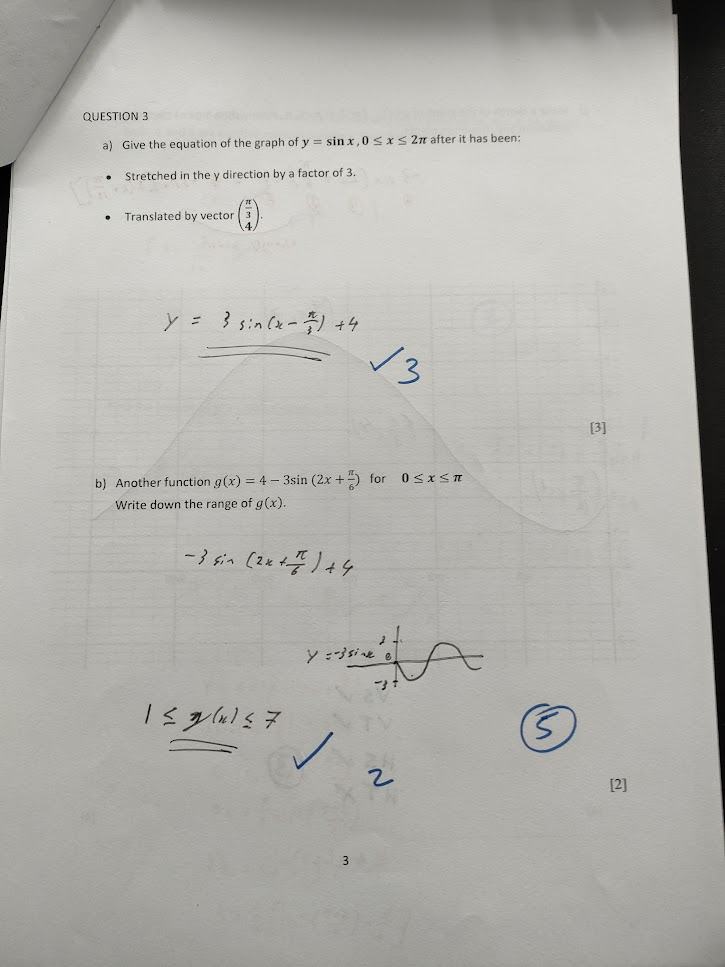 QUESTION 3
a) Give the equation of the graph of y = sin x , 0 ≤ x ≤ 2π after it has been:
• Stretched in the y direction by a factor of 3.
• Translated by vector (π/3 4).
y = 3 sin(x - π/3) + 4
✓3
[3]
b) Another function g(x) = 4 − 3sin (2x + π/6) for 0 ≤ x ≤ π
Write down the range of g(x).
-3 sin (2x + π/6) + 4
3
y = -3 sin x 0
-3
1 ≤ g(x) ≤ 7
✓ 2
5
[2]
3